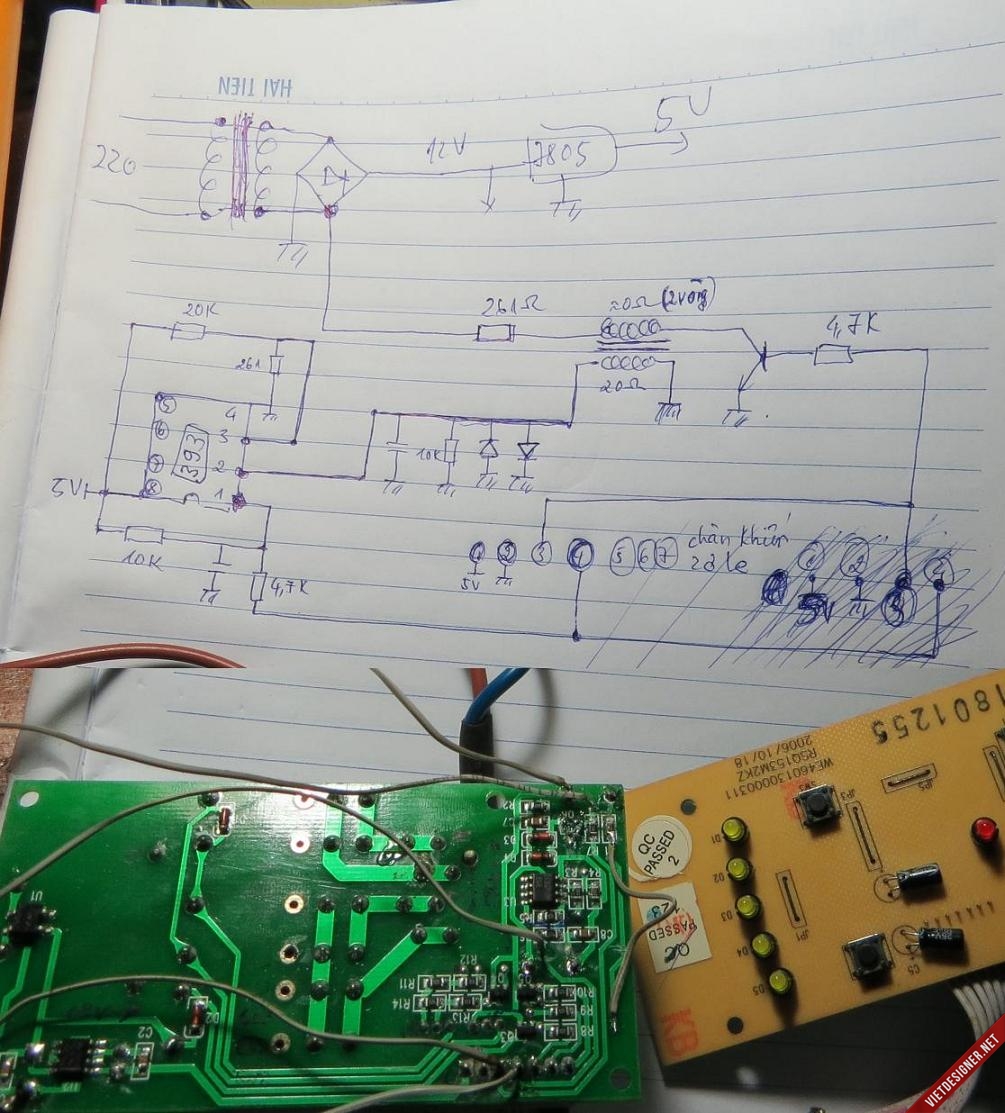 HAI TIEN
220
12V
7805
5V
20K
261Ω
20Ω (2 vòng)
4,7K
261
20Ω
5
6
7
8
393
4
3
2
1
10K
5V
10K
4,7K
1 2 3 4 5 6 7 chân khiển
rơle
5V
1 2 3 4
5V
1801255
WE460130000311
RSQ153M2KZ
2006/10/18
QC
PASSED
2
PASSED
20
SW2
JP3
JP5
JP1
D1
D2
D3
D4
D5
C5
KB
U1
R2
C7
D3
R4
R3
U3
R5
C8
R12
R11
R14
R13
R10
R9
R8
D2
C2
VIETDESIGNER.NET